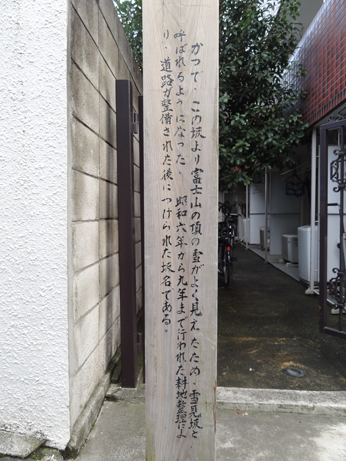 かつて、この坂より富士山の頂の雪がよく見えたため、雪見坂と
呼ばれるようになった。昭和六年から九年まで行われた耕地整理によ
り、道路が整備された後につけられた坂名である。